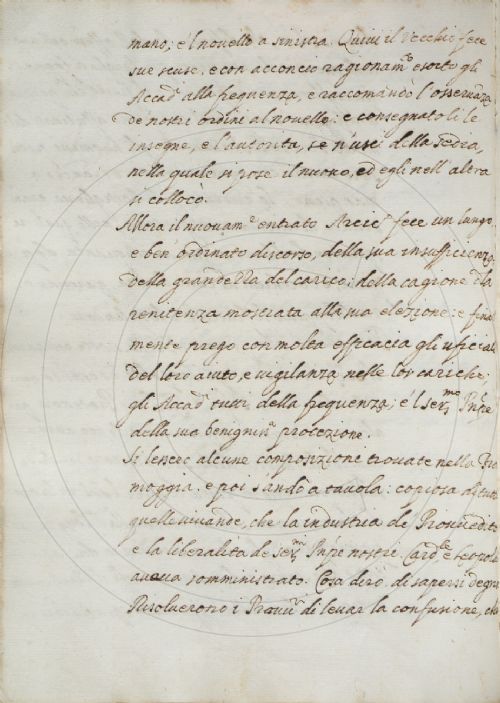 mano; e'l nouello a sinistra. Quiui il Vecchio fece
sue scuse, e con acconcio ragionam.to esortò gli
Accad.ci alla frequenza, e raccomandò l'osseruanza
de nostri ordini al nouello: e consegnatoli le
insegne, e l'autorità, se n'uscì della sedia,
nella quale si pose il nuouo, ed egli nell'altra
si collocò.
Allora il nuouam.e entrato Arcic.o fece un lungo,
e ben ordinato discorso, della sua insufficienza,
della grandezza del carico; della cagione d la
renitenza mostrata alla sua elezione: e final
mente pregò con molta efficacia gli uficiali
del loro aiuto, e vigilanza nelle lor cariche;
gli Accad.ci tutti della frequenza; e'l Ser.mo Pnĩpe
della sua benigniss.a protezione.
Si lessero alcune composizione trouate nella Tra
moggia. e poi s'andò a tauola: copiosa di tutte
quelle viuande, che la industria de Prouuedit
e la liberalità de Ser.mi Pnĩpi nostri. Card.le e Leopoldo
aueua somministrato. Cosa dirò di sapersi
Risoluerono i Prouu.ri di leuar la confusione, che